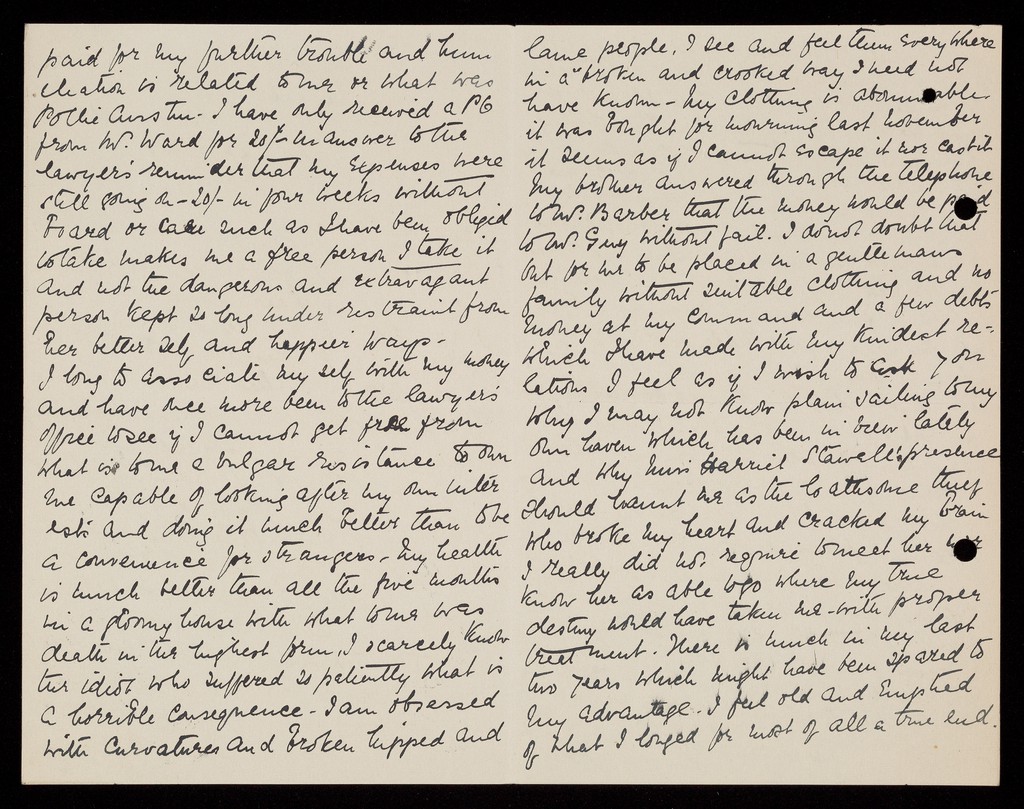 paid for my further trouble and hum
iliation is related to me or what was
Pollie Austin. I have only received a PO
from Mr. Ward for 20/- in answer to the
lawyer's reminder that my expenses were
still going on - 20/- in four weeks without
Board or care such as I have been obliged
to take makes me a free person I take it
and not the dangerous and extravagant
person kept so long under restraint from
her better self and happier ways -
I long to associate my self with my money
and have once more been to the lawyer's
office to see if I cannot get free from
what is to me a vulgar resistance to own
me capable of looking after my own inter
ests and doing it much better than to be
a convenience for strangers - My health
is much better than all the five months
in a gloomy house with what to me was
death in the highest form, I scarcely know
the idiot who suffered so patiently what is
a horrible consequence - I am obsessed
with curvatures and broken hipped and
lame people. I see and feel them everywhere
in a broken and crooked way I need not
have known - My clothing is abominable
it was bought for mourning last November
it seems as if I cannot escape it nor cast it
My brother answered through the telephone
to Mr. Barber that the money would be paid
to Mr. Guy without fail. I do not doubt that
but for me to be placed in a gentleman's
family without suitable clothing and no
money at my command and a few debts
which I have made with my kindest re-
lations I feel as if I wish to ask you
why I may not know plain sailing to my
own haven which has been in view lately
and why Miss Harriet Stawell's presence
should haunt me as the loathsome thief
who broke my heart and cracked my brain
I really did not require to meet her nor
know her as able to go where my true
destiny would have taken me - with proper
treatment. There is much in my last
two years which might have been spared to
my advantage. I feel old and emptied
of what I longed for most of all a true end.